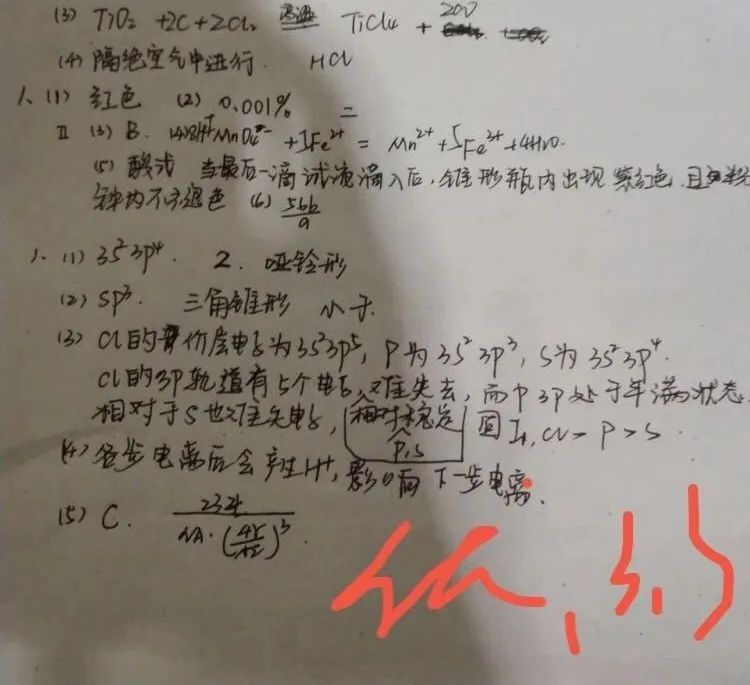 (3) TiO₂ +2C+2Cl₂ 高温 TiCl₄ + 2CO
(4) 隔绝空气中进行. HCl
1、(1) 红色 (2) 0.001% 二
II (3) B. (4) 8H⁺ MnO₄⁻ +5Fe²⁺ = Mn²⁺+5Fe³⁺+4H₂O.
(5) 酸式 当最后一滴试液滴入后,锥形瓶内出现紫红色,且半分
钟内不褪色 (6) 56b/a
1、(1) 3s²3p⁴. 2. 哑铃形
(2) sp³. 三角锥形 小于.
(3) Cl的价层电子为3s²3p⁵, P为3s²3p³, S为3s²3p⁴.
Cl的3P轨道有5个电子,难失去,而P 3p处于半满状态.
相对于S也难失电子, 相对稳定 因I₁, Cl> P>S.
P,S
(4) 各步电离后会产生H⁺,影响下一步电离.
(5) C. 232/(NA·(4r/√2)³)